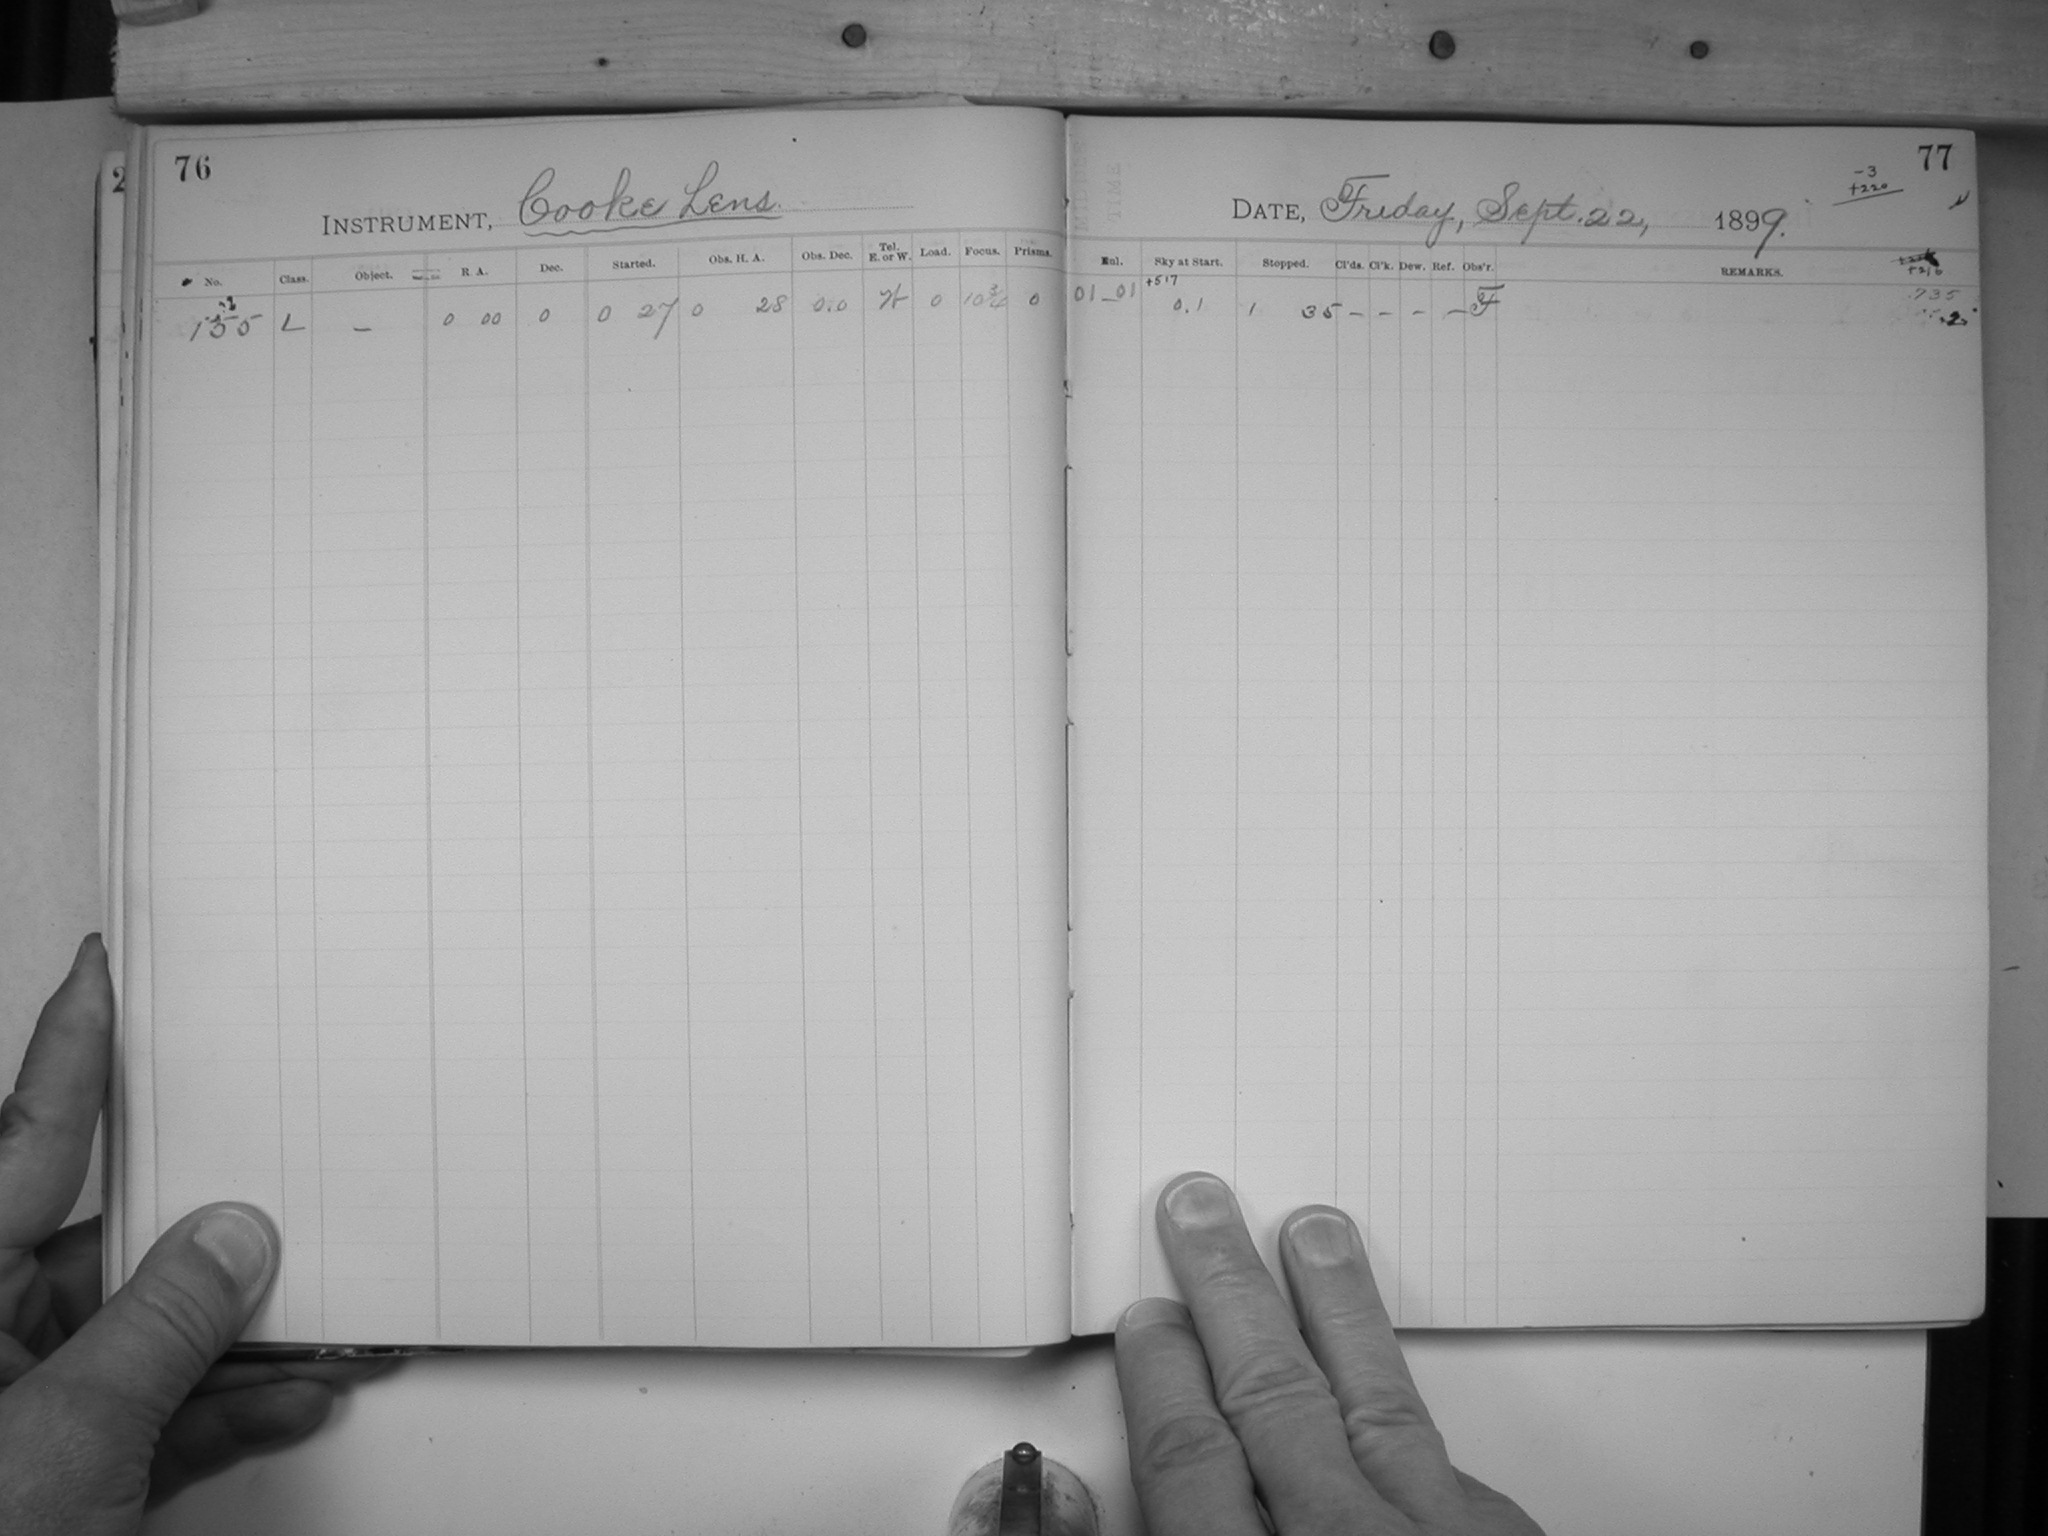 76
INSTRUMENT, Cooke Lens.
No. Class. Object. R. A. Dec. Started. Obs. H. A. Obs. Dec. Tel. E. or W. Load. Focus. Prisms.
L — 0 00 0 0 27 0 28 0.0 W 0 10 3/4 0
77
-3
+220
DATE, Friday, Sept. 22, 1899.
Enl. Sky at Start. Stopped. Cl'ds. Cl'k. Dew. Ref. Obs'r. REMARKS.
+216
+517
01_01 0.1 1 35 — — — — F
.735